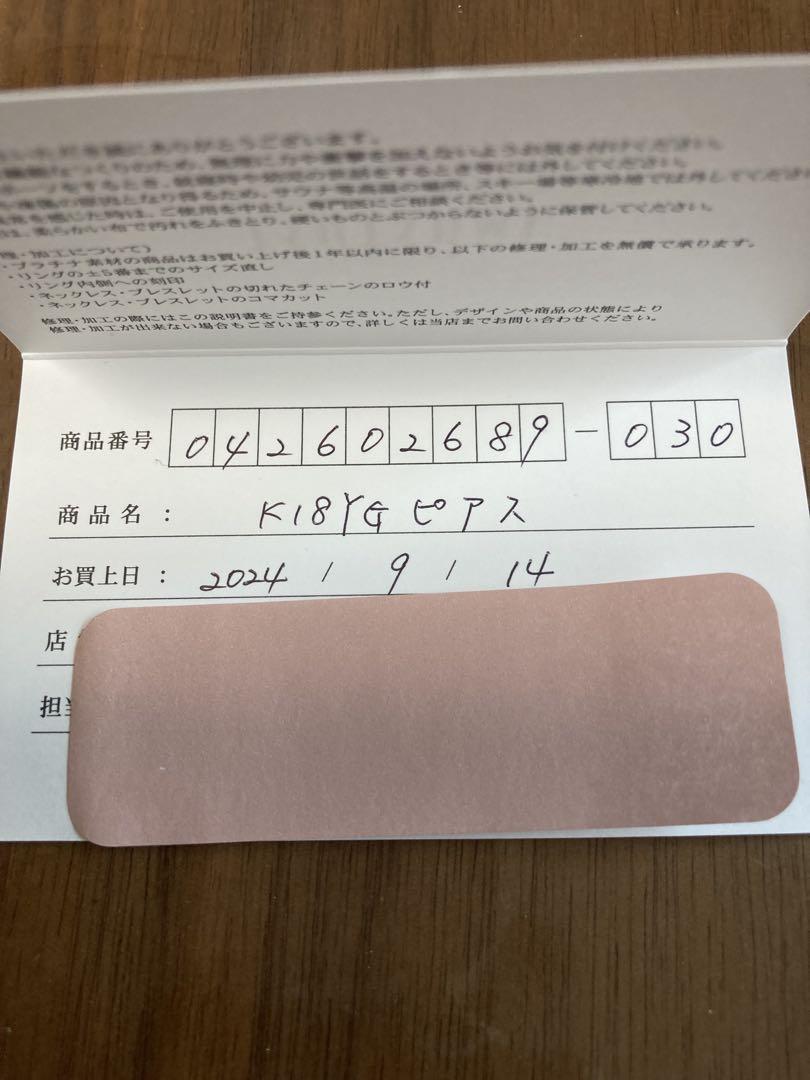 ありがとうございます。
つくりのため、無理に力や衝撃を加えないようお気を付けください。
をするとき、就寝時や幼児の世話をするとき等には外してください。
原因となり得るため、サウナ等高温の場所、スキー場等寒冷地では外してください
を感じた時は、ご使用を中止し、専門医にご相談ください。
は、柔らかい布で汚れをふきとり、硬いものとぶつからないように保管してください。
理・加工について)
・プラチナ素材の商品はお買い上げ後1年以内に限り、以下の修理・加工を無償で承ります。
・リングの±5番までのサイズ直し
・リング内側への刻印
・ネックレス・ブレスレットの切れたチェーンのロウ付
・ネックレス・ブレスレットのコマカット
修理・加工の際にはこの説明書をご持参ください。ただし、デザインや商品の状態により
修理・加工が出来ない場合もございますので、詳しくは当店までお問い合わせください。
商品番号 042602689-030
商品名： K18YGピアス
お買上日： 2024 / 9 / 14
店
担当